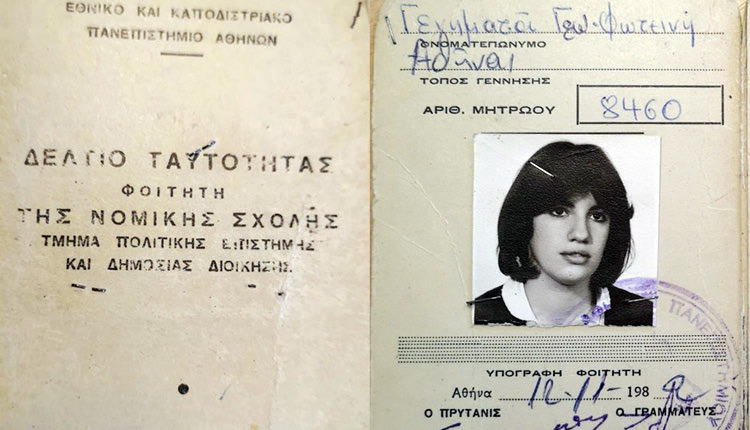 ΕΘΝΙΚΟ ΚΑΙ ΚΑΠΟΔΙΣΤΡΙΑΚΟ
ΠΑΝΕΠΙΣΤΗΜΙΟ ΑΘΗΝΩΝ
ΔΕΛΤΙΟ ΤΑΥΤΟΤΗΤΑΣ
ΦΟΙΤΗΤΗ
ΤΗΣ ΝΟΜΙΚΗΣ ΣΧΟΛΗΣ
ΤΜΗΜΑ ΠΟΛΙΤΙΚΗΣ ΕΠΙΣΤΗΜΗΣ
ΚΑΙ ΔΗΜΟΣΙΑΣ ΔΙΟΙΚΗΣΗΣ
ΟΝΟΜΑΤΕΠΩΝΥΜΟ
Αθήναι
ΤΟΠΟΣ ΓΕΝΝΗΣΗΣ
ΑΡΙΘ. ΜΗΤΡΩΟΥ 8460
ΥΠΟΓΡΑΦΗ ΦΟΙΤΗΤΗ
Αθήνα 12-11- 198
Ο ΠΡΥΤΑΝΙΣ Ο ΓΡΑΜΜΑΤΕΥΣ